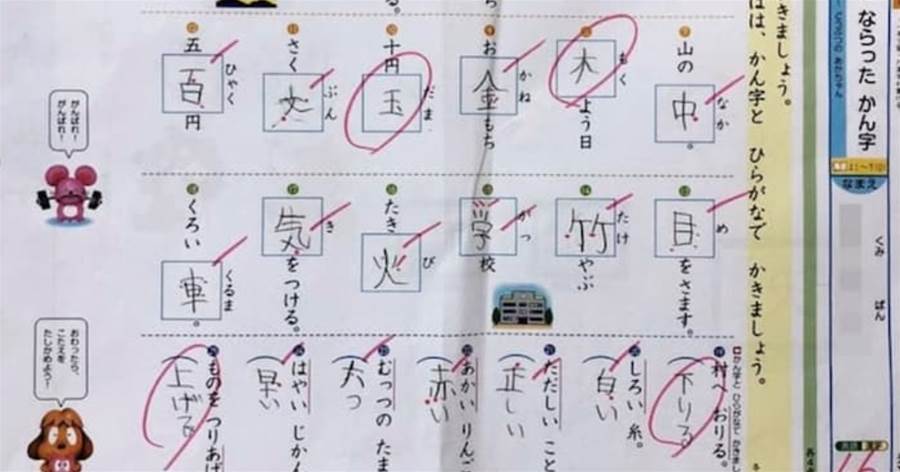 ならった かん字
なまえ
くみ
ばん
きましょう。
は、かん字と ひらがなで かきましょう。
山の中。
なか
木よう日
もく
お金もち
かね
十円玉
だま
さく文
ぶん
五百円
ひゃく
目をさます。
め
竹やぶ
たけ
学校
がっ
たき火
び
気をつける。
き
くろい車。
くるま
村へ おりる。
下りる
しろい 糸。
白い
ただしい こと
正しい
あかい りんご
赤い
むっつの たま
六つ
はやい じかん
早い
ものを つりあげ
上げる
がんばれ!
がんばれ!
おわったら、
こたえを
たしかめよう!